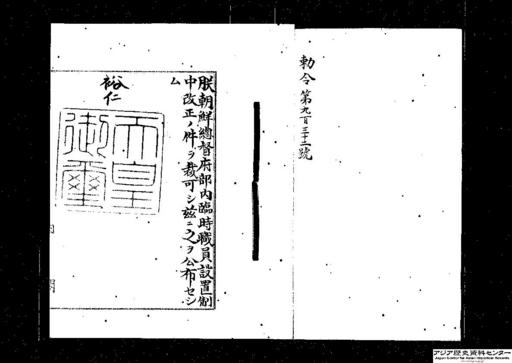 勅令第九百三十二號
朕朝鮮總督府部內臨時職員設置制
中改正ノ件ヲ裁可シ茲ニ之ヲ公布セシ
ム
裕仁
天皇御璽
アジア歴史資料センター
Japan Center for Asian Historical Records